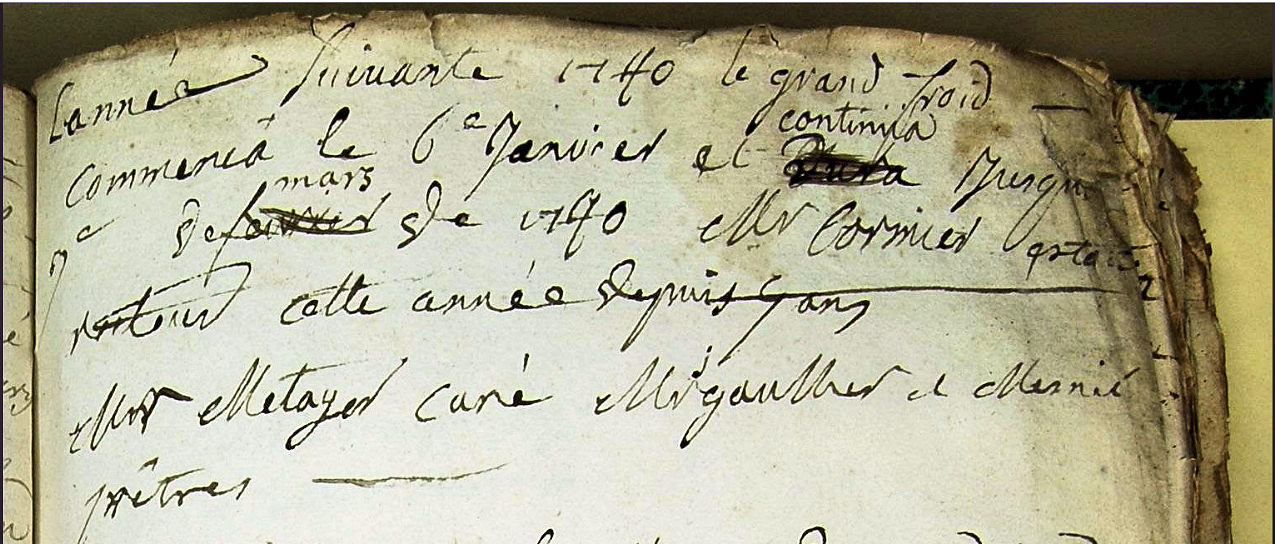 Lannée suivante 1740 le grand froid
commenca le 6e Janvier et continua Jusqu
mars
7e de fevrier de 1740 Mr Cormier estoit
retour cette année depuis 9 ans
Mr Metayer curé Mrs gaultier et Mesnié
prêtres